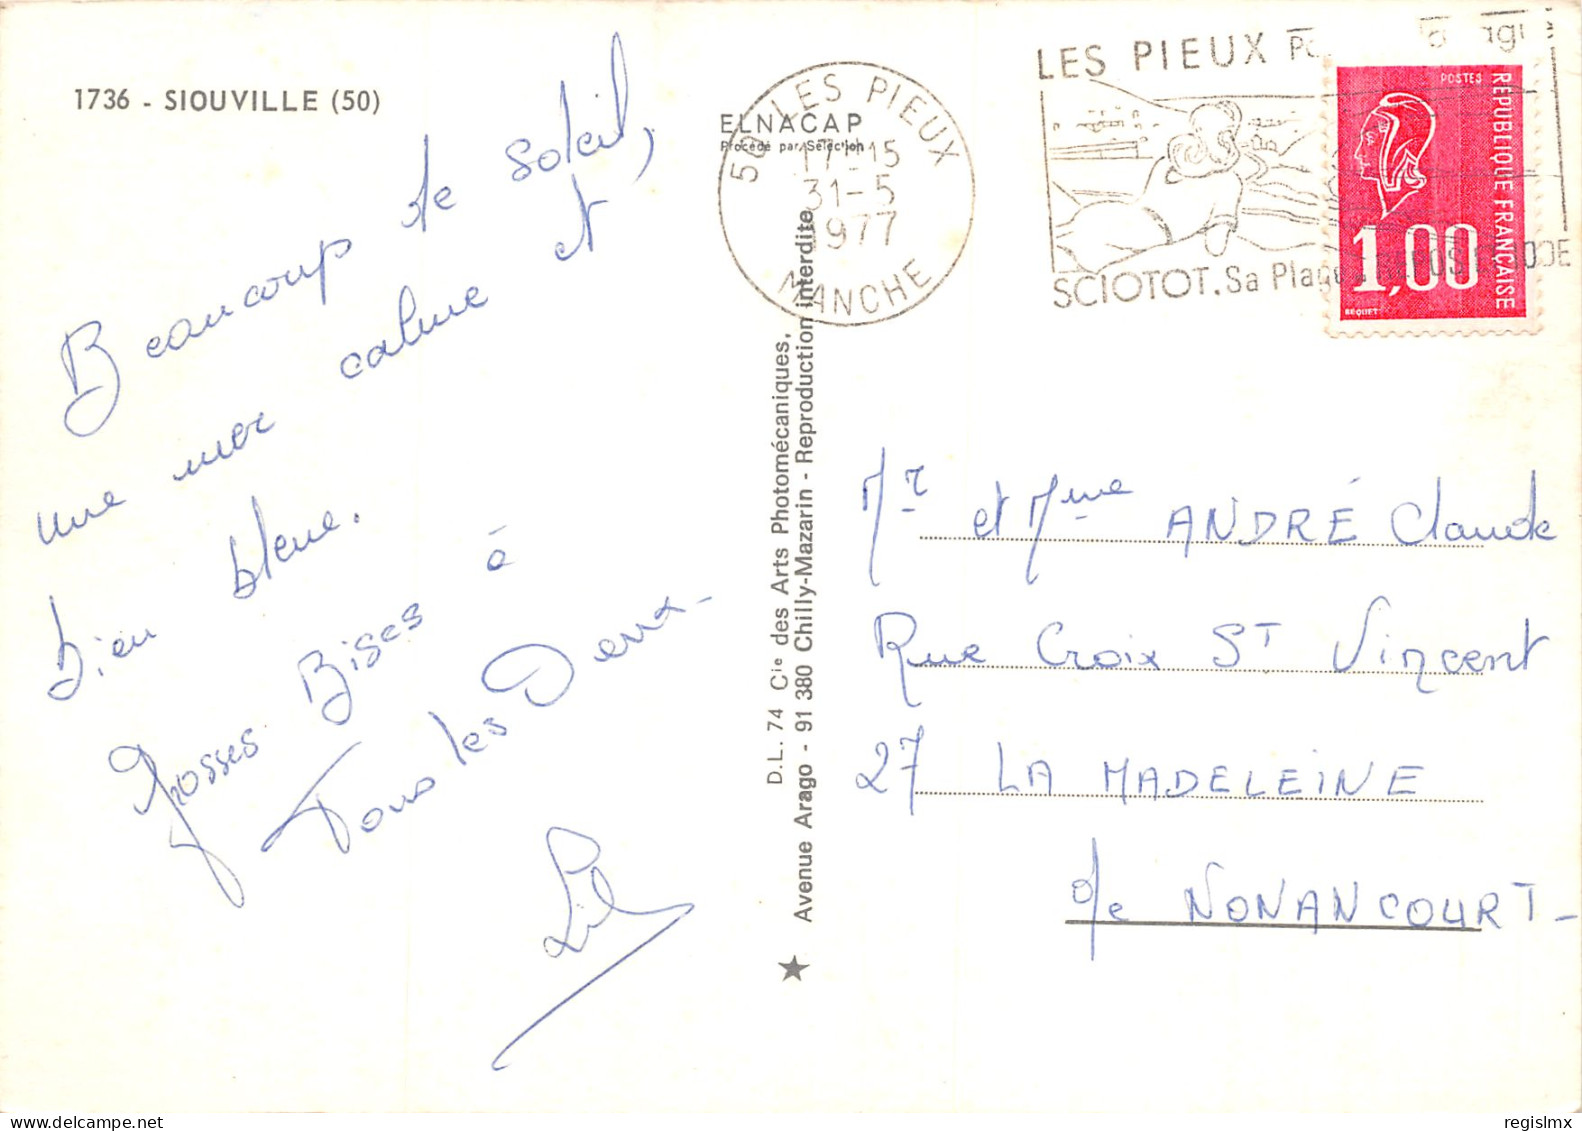 1736 - SIOUVILLE (50)
Beaucoup de soleil,
une mer calme et
bien bleue.
Grosses Bises à
Tous les Deux -
ELNACAP
Procédé par Sélection
50 LES PIEUX
17H15
31-5
1977
MANCHE
LES PIEUX
SCIOTOT. Sa Plage
POSTES
REPUBLIQUE FRANÇAISE
1,00
BEQUET
D.L. 74 Cie des Arts Photomécaniques,
Avenue Arago - 91 380 Chilly-Mazarin - Reproduction interdite
Mr et Mme ANDRÉ Claude
Rue Croix ST Vincent
27 LA MADELEINE
de NONANCOURT -
regislmx